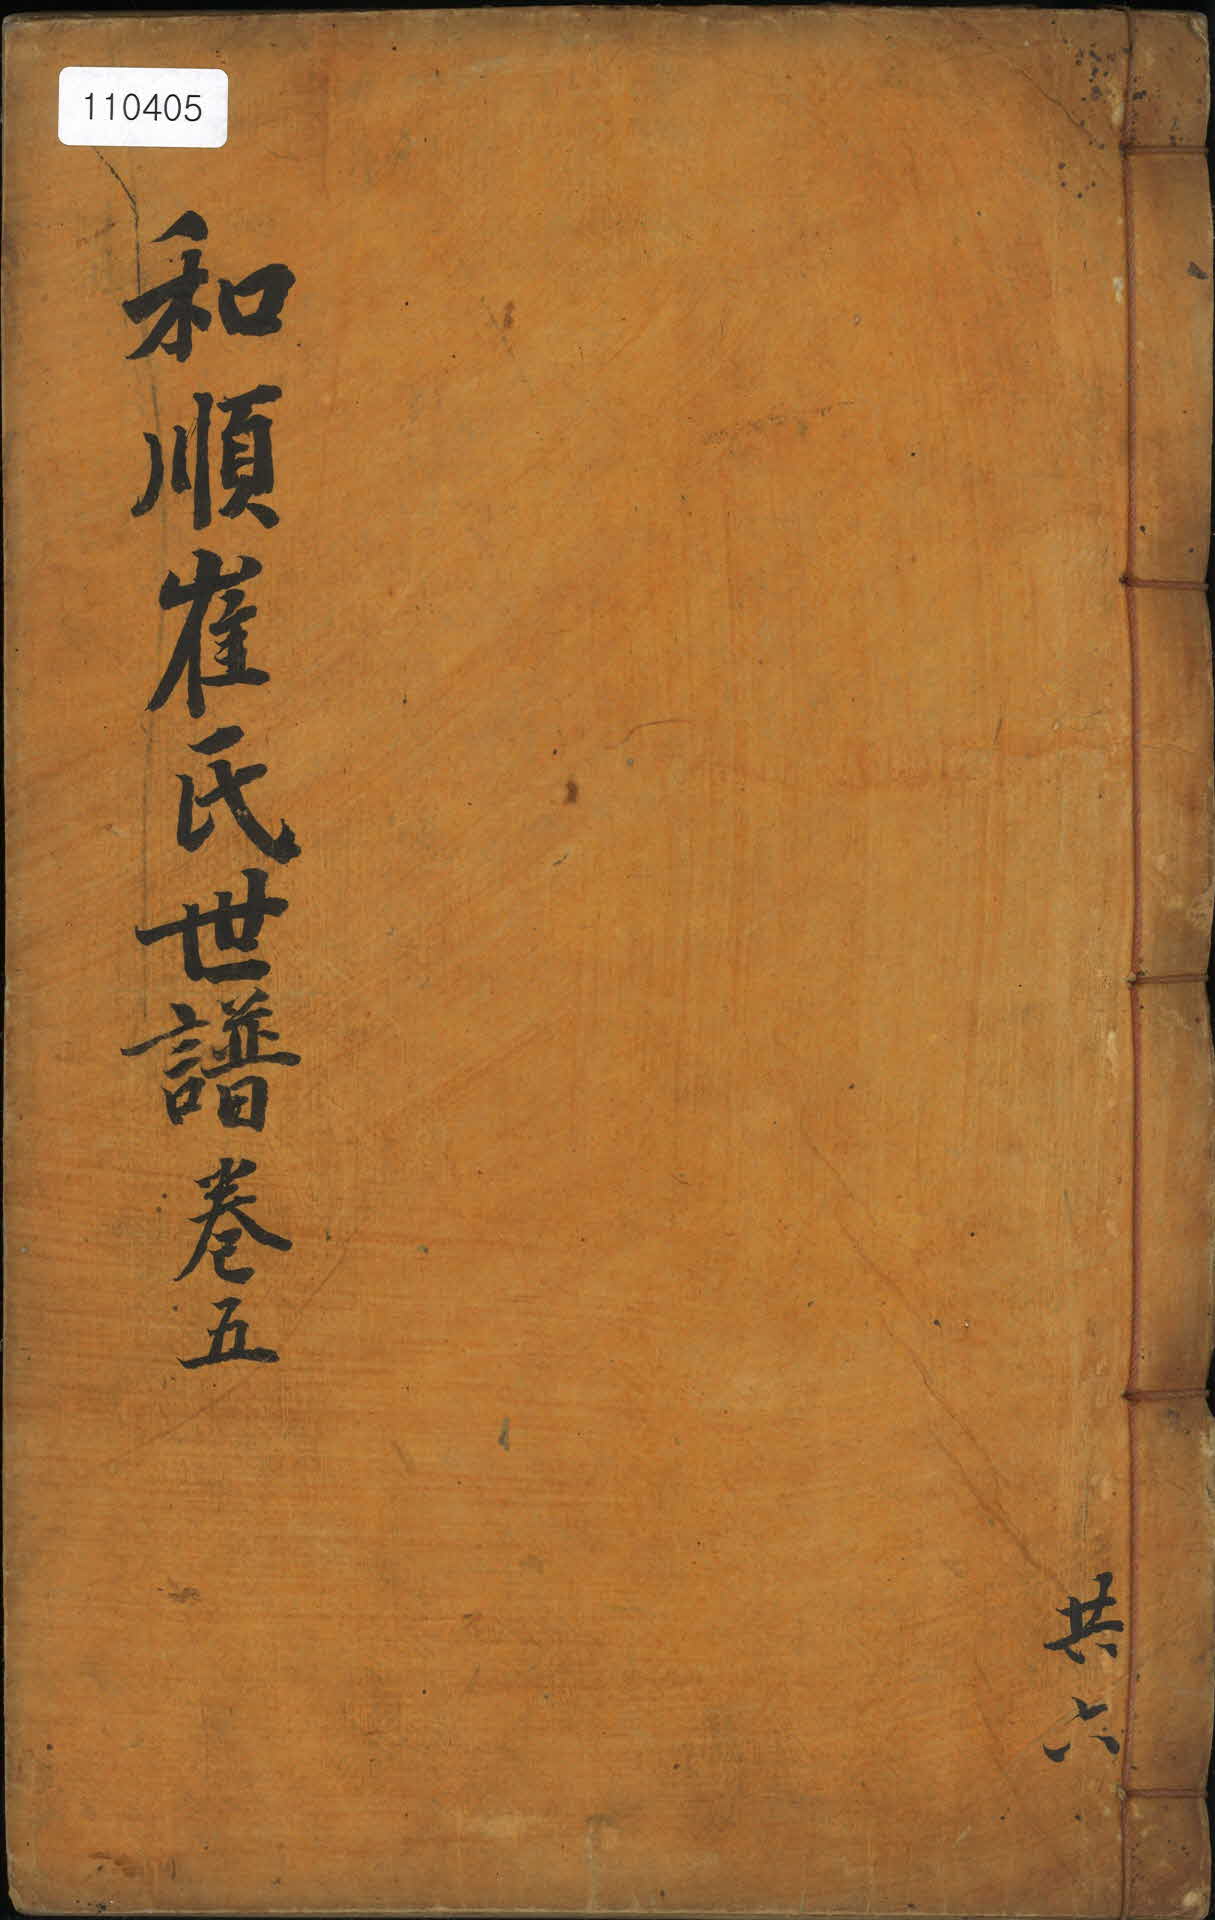 110405
和順崔氏世譜卷五
共六